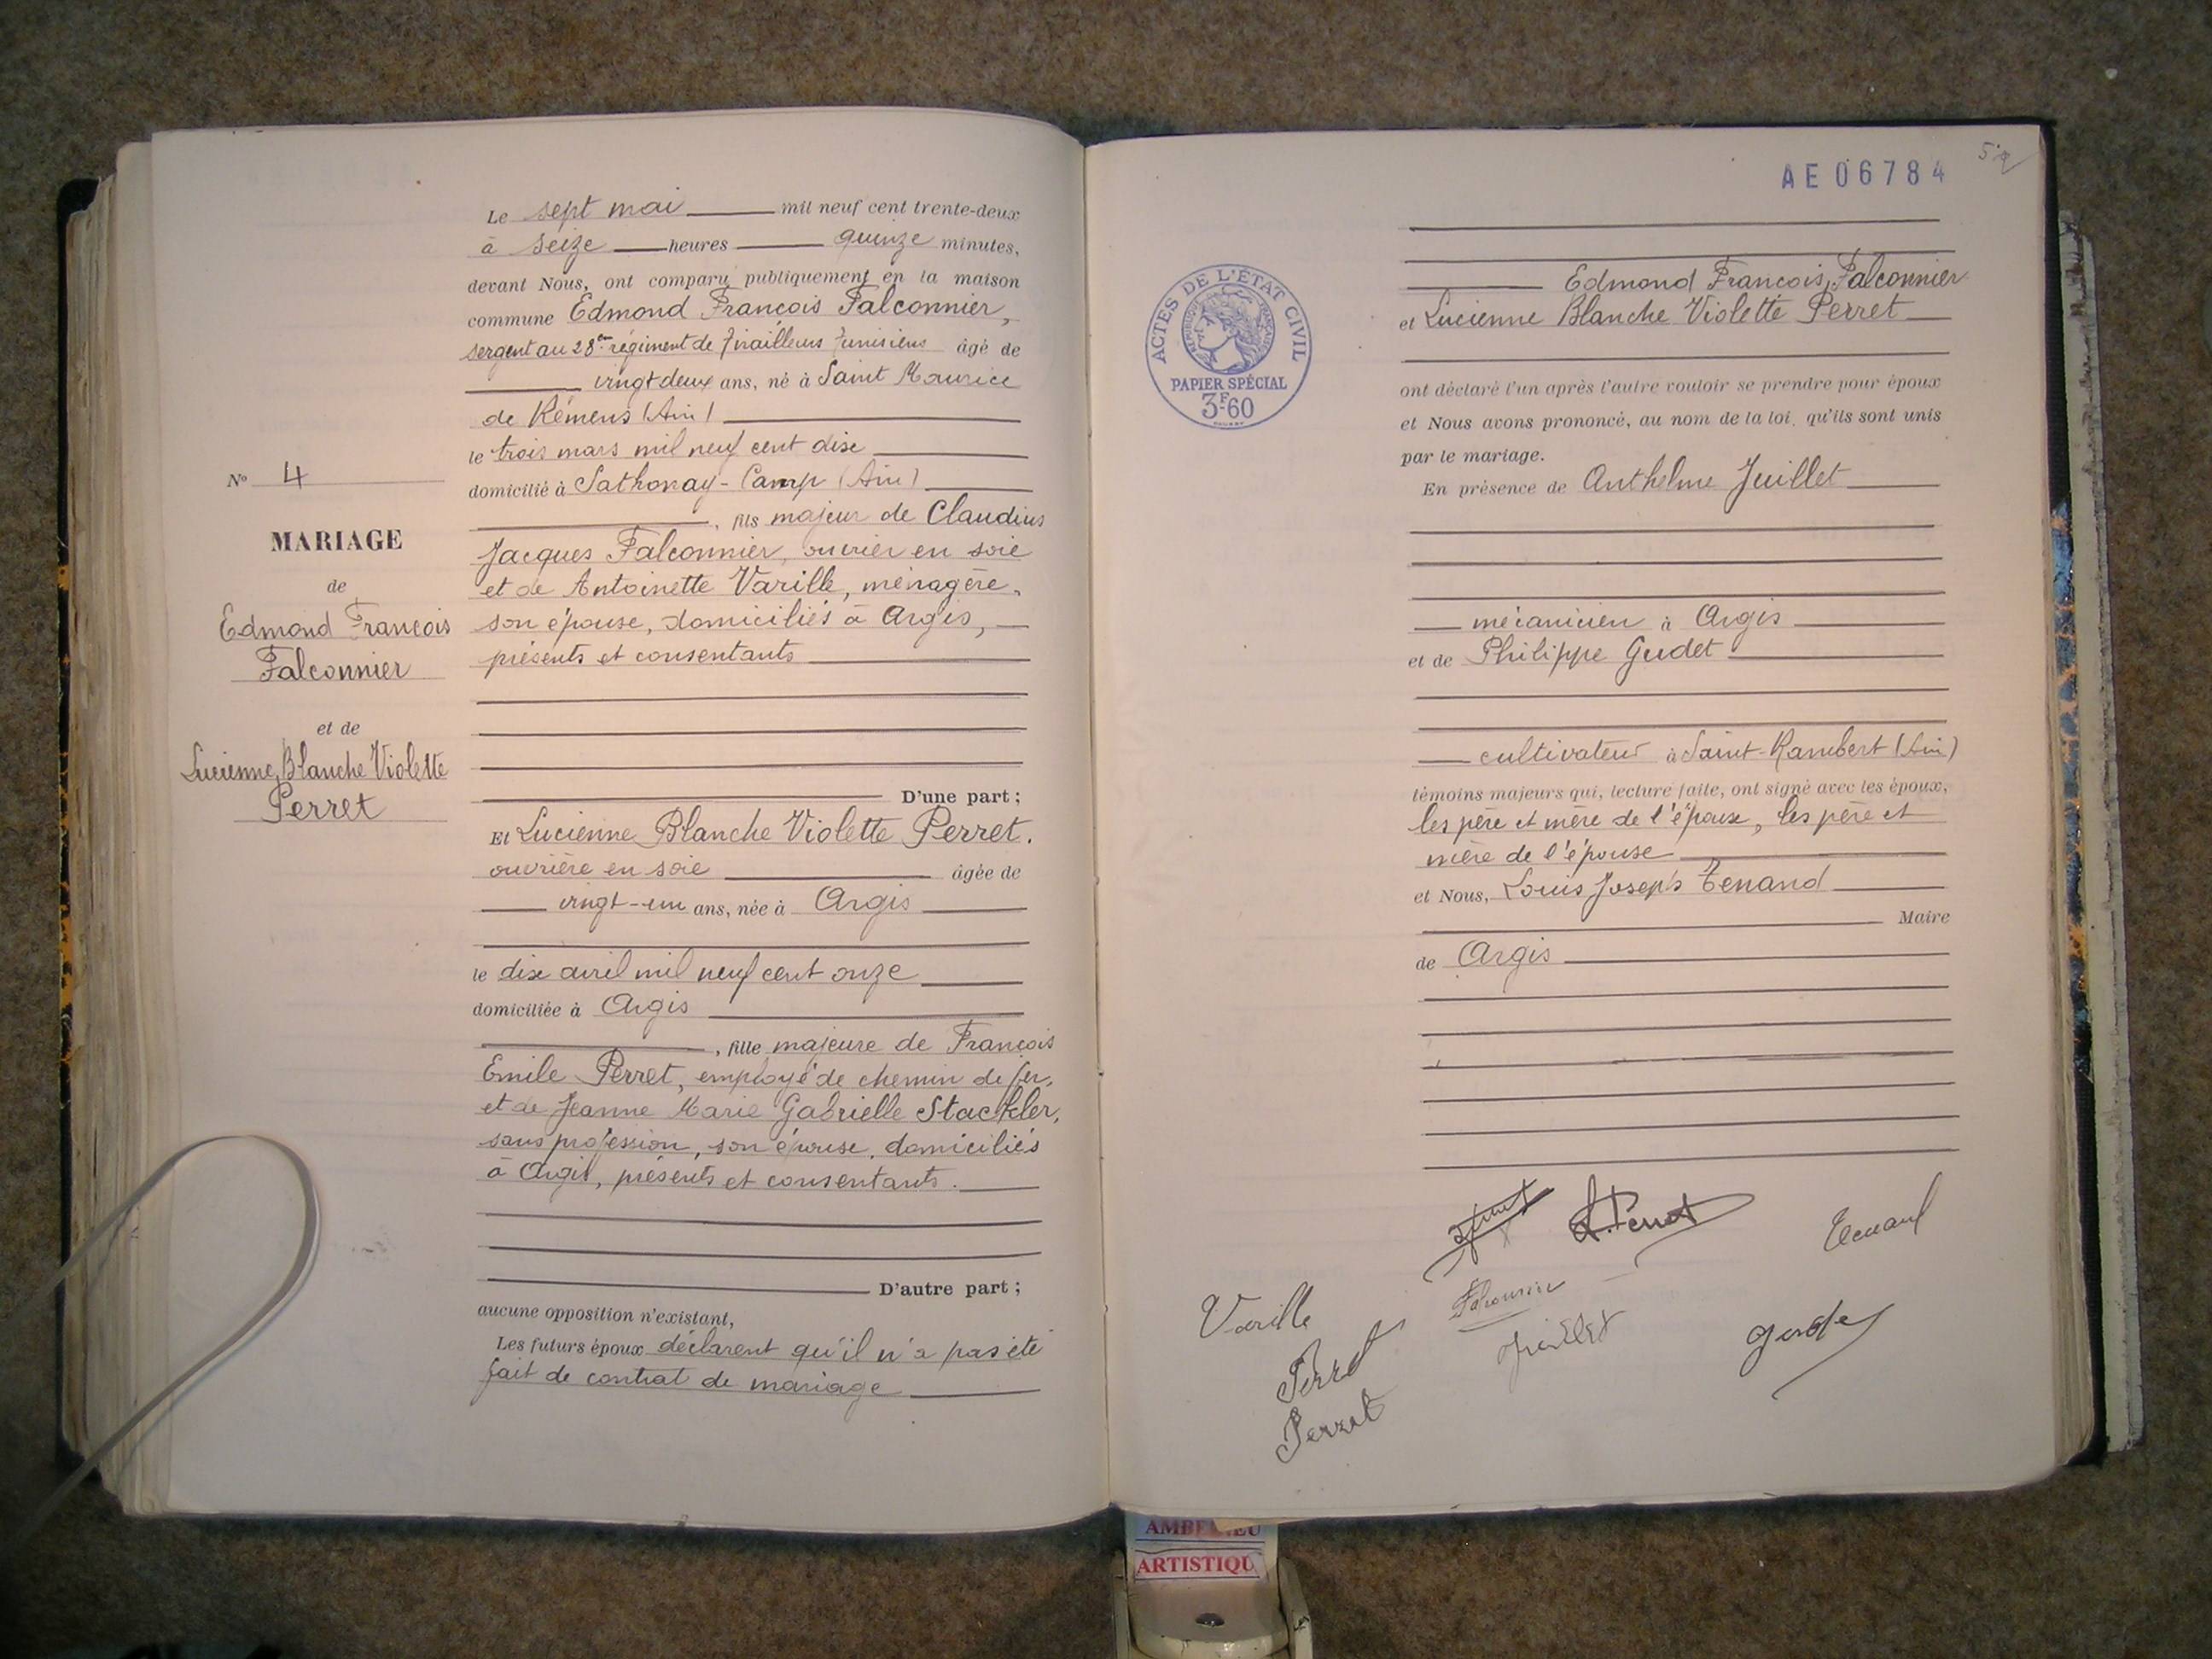 Le sept mai mil neuf cent trente-deux
à seize heures quinze minutes,
devant Nous, ont comparu publiquement en la maison
commune Edmond François Falconnier,
sergent au 28em régiment de Tirailleurs Tunisiens âgé de
vingt deux ans, né à Saint Maurice
de Rémens (Ain)
le trois mars mil neuf cent dix
domicilié à Sathonay-Camp (Ain)
, fils majeur de Claudius
Jacques Falconnier, ouvrier en soie
et de Antoinette Varille, ménagère,
son épouse, domiciliés à Argis,
présents et consentants
D'une part ;
Et Lucienne Blanche Violette Perret.
ouvrière en soie âgée de
vingt-un ans, née à Argis
le dix avril mil neuf cent onze
domiciliée à Argis
, fille majeure de François
Emile Perret, employé de chemin de fer,
et de Jeanne Marie Gabrielle Stackler,
sans profession, son épouse, domiciliés
à Argis, présents et consentants.
D'autre part ;
aucune opposition n'existant,
Les futurs époux déclarent qu'il n'a pas été
fait de contrat de mariage
No 4
MARIAGE
de
Edmond François
Falconnier
et de
Lucienne Blanche Violette
Perret
AE 06784
ACTES DE L'ÉTAT CIVIL
RÉPUBLIQUE FRANÇAISE
PAPIER SPÉCIAL
3F60
Edmond François Falconnier
et Lucienne Blanche Violette Perret
ont déclaré l'un après l'autre vouloir se prendre pour époux
et Nous avons prononcé, au nom de la loi, qu'ils sont unis
par le mariage.
En présence de Anthelme Juillet
mécanicien à Argis
et de Philippe Gudet
cultivateur à Saint-Rambert (Ain)
témoins majeurs qui, lecture faite, ont signé avec les époux,
les père et mère de l'époux, les père et
mère de l'épouse
et Nous, Louis Joseph Tenand
Maire
de Argis
L. Perret
Tenand
Varille
Falconnier
Juillet
Gudet
Perret
Perret
AMBERIEU
ARTISTIQU